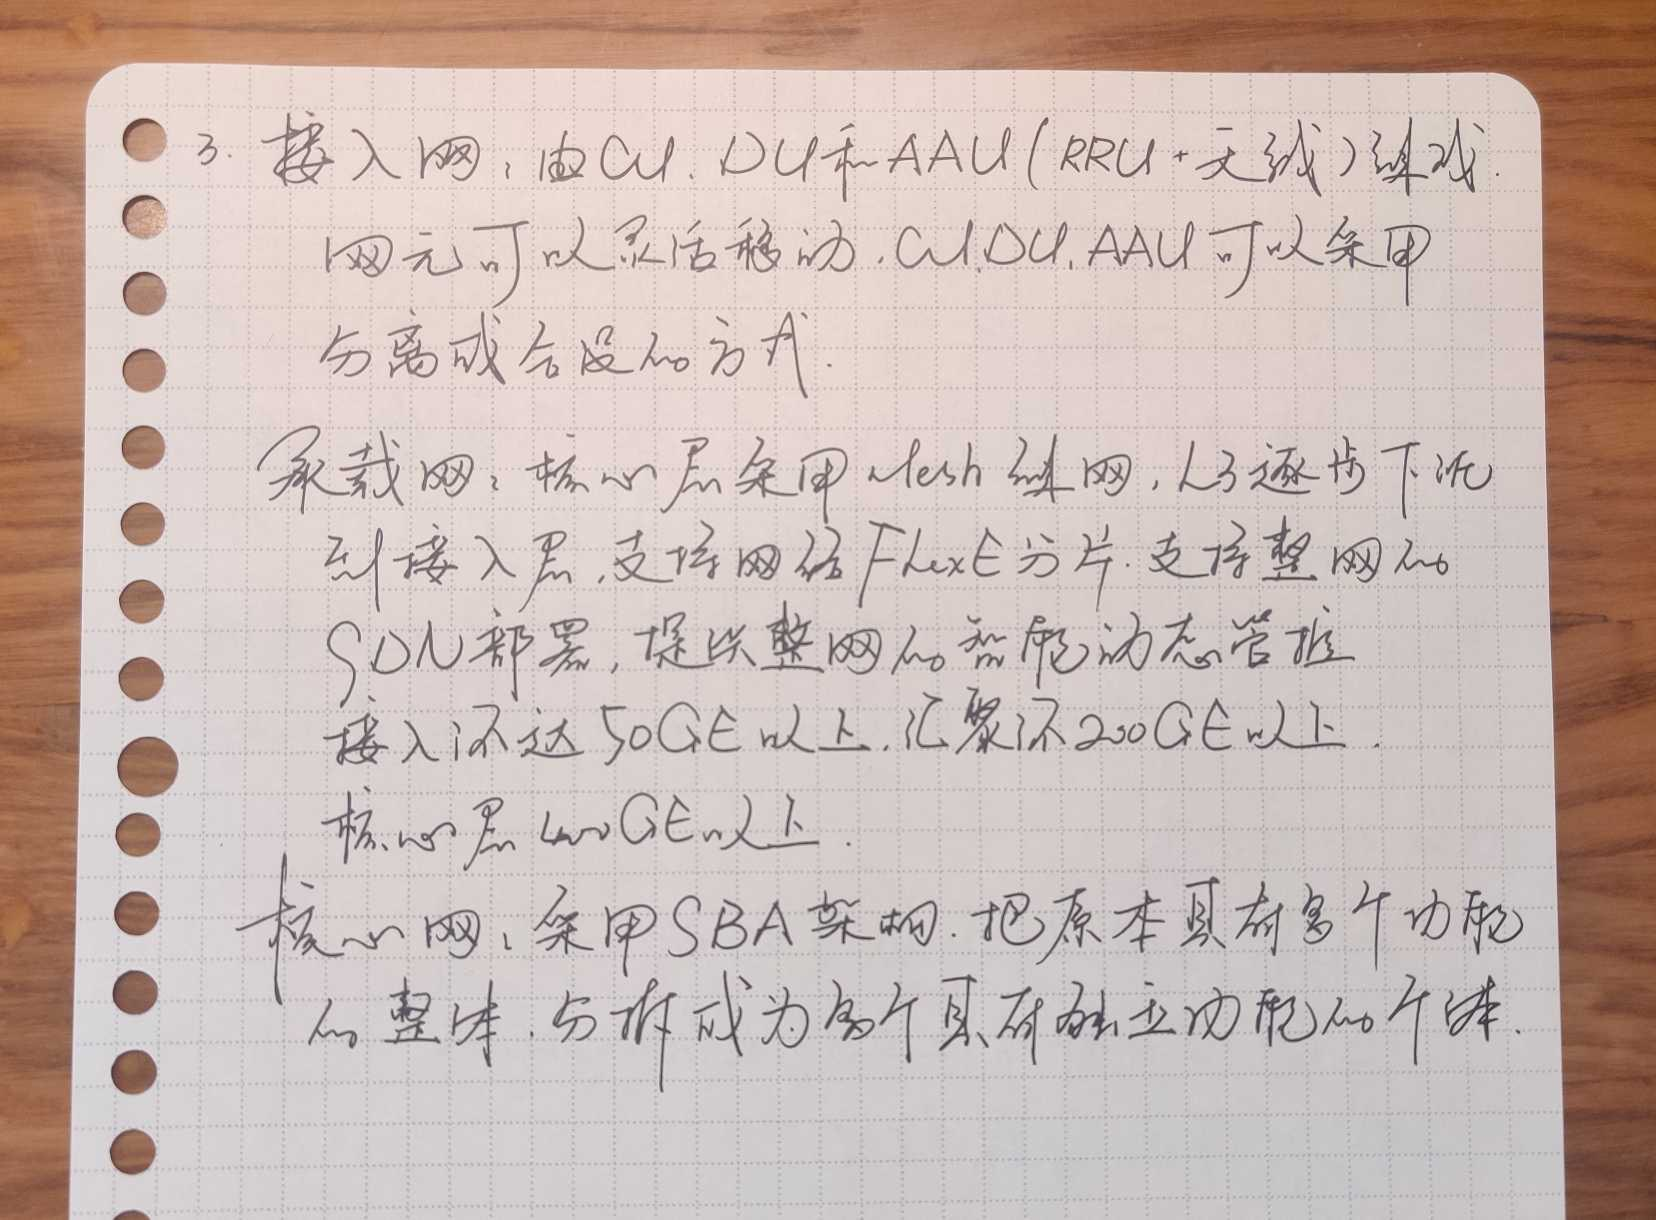 3. 接入网：由CU、DU和AAU（RRU+天线）组成.
网元可以灵活移动.CU、DU、AAU可以采用
分离或合设的方式.
承载网：核心层采用Mesh组网，L3逐步下沉
到接入层，支持网络FlexE分片.支持整网的
SDN部署，提供整网的智能动态管控
接入环达50GE以上，汇聚环200GE以上.
核心层400GE以上.
核心网：采用SBA架构.把原本具有多个功能
的整体，分拆成为多个具有独立功能的个体.